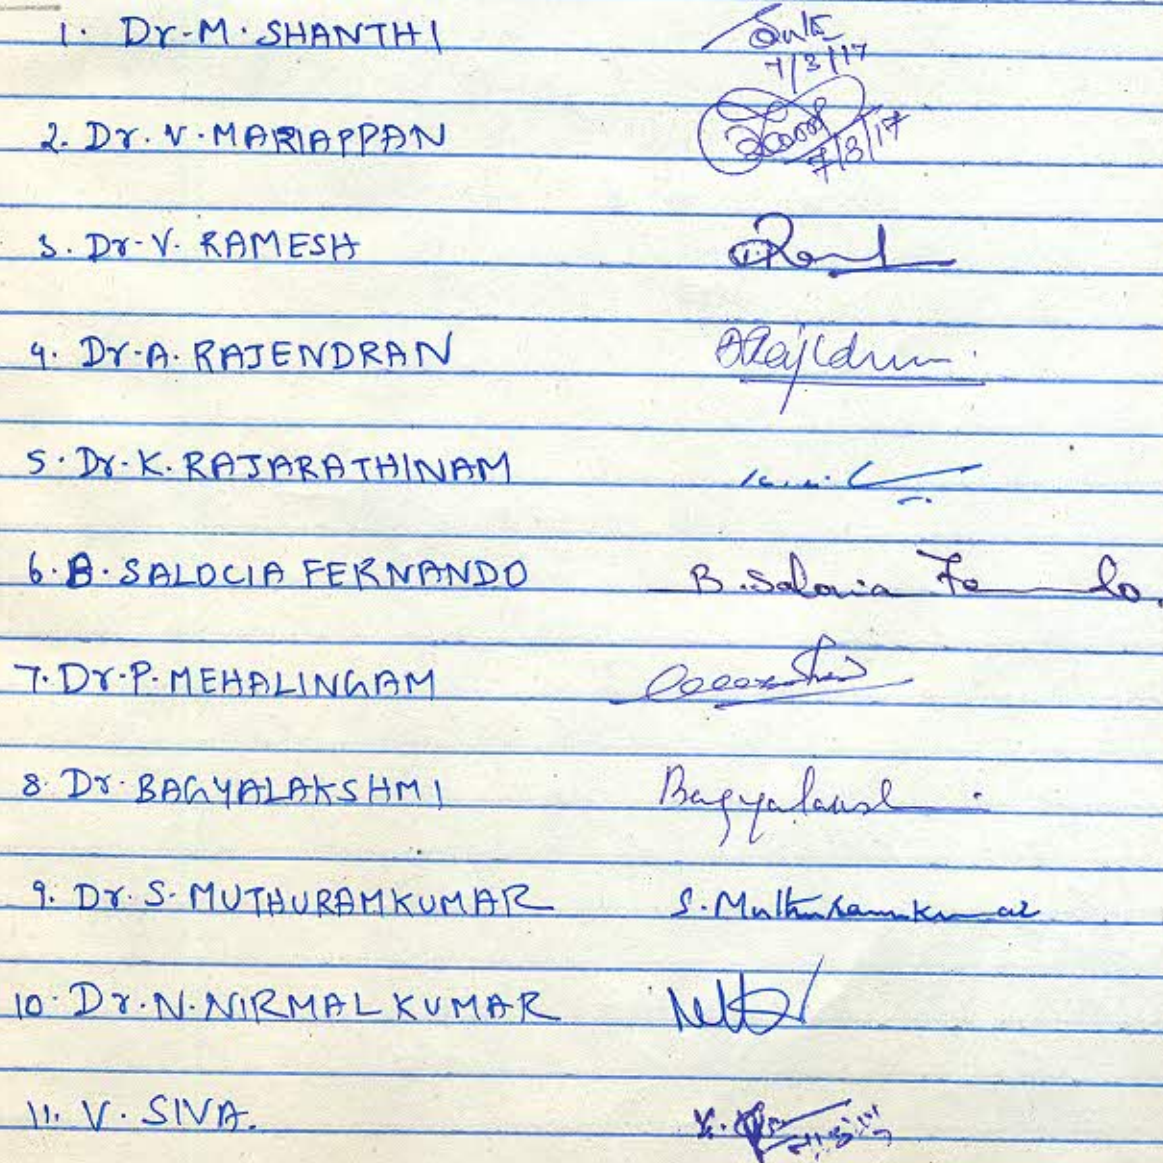 1. Dr. M. SHANTHI
7/3/17
2. Dr. V. MARIAPPAN
7/3/17
3. Dr. V. RAMESH
4. Dr. A. RAJENDRAN
5. Dr. K. RAJARATHINAM
6. B. SALOCIA FERNANDO B. Salocia Fe
7. Dr. P. MEHALINGAM
8. Dr. BAGYALAKSHMI
9. Dr. S. MUTHURAMKUMAR S. Muthuramkumar
10. Dr. N. NIRMAL KUMAR
11. V. SIVA.